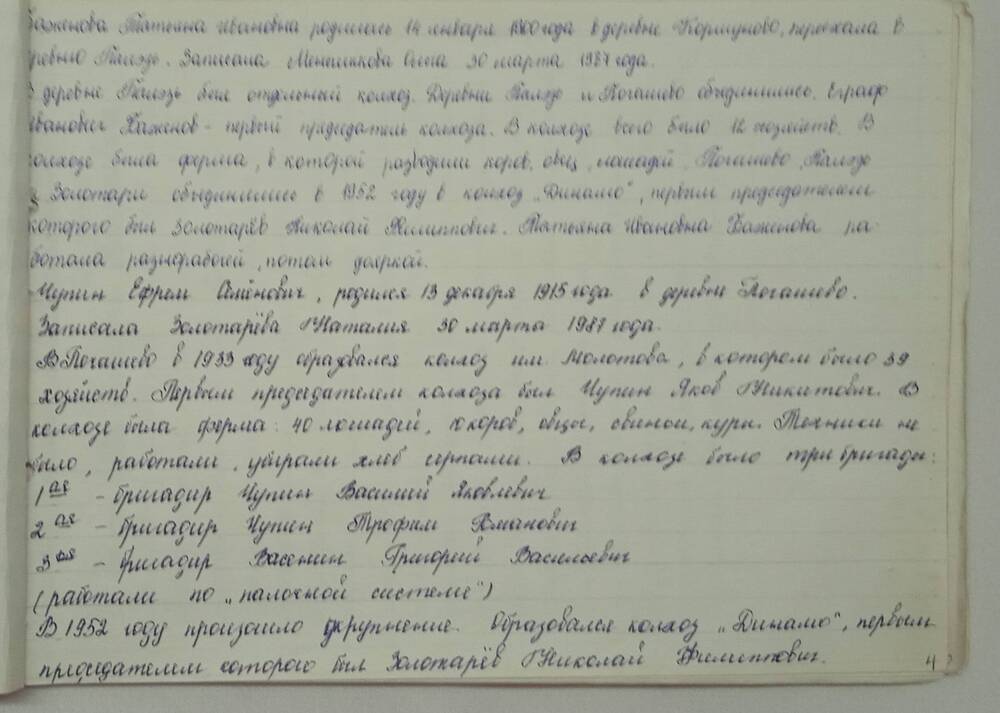 Баженова Татьяна Ивановна родилась 14 января 1900 года в деревне Кормуново, переехала в
деревню Палэдь. Записала Меньшикова Елена 30 марта 1987 года.
В деревне Палэдь был отдельный колхоз. Деревни Палэдь и Логашево объединились. Еграф
Иванович Баженов - первый председатель колхоза. В колхозе всего было 12 хозяйств. В
колхозе была ферма, в которой разводили коров, овец, лошадей. Логашево,
и Золотари объединились в 1952 году в колхоз „Динамо“, первым председателем
которого был Золотарёв Николай Филиппович. Татьяна Ивановна Баженова ра-
ботала разнорабочей, потом дояркой.
Чупин Ефрем Семёнович, родился 13 декабря 1915 года в деревне Логашево.
Записала Золотарёва Наталия 30 марта 1987 года.
В Логашево в 1933 году образовался колхоз им. Молотова, в котором было 39
хозяйств. Первым председателем колхоза был Чупин Яков Никитович. В
колхозе была ферма: 40 лошадей, коров, овцы, свиньи, куры. Техники не
было, работали, убирали хлеб серпами. В колхозе было три бригады:
1ая - бригадир Чупин Василий Яковлевич
2ая - бригадир Чупин Трофим Романович
3ая - бригадир Васенин Григорий Васильевич
(работали по „палочной системе“)
В 1952 году произошло укрупнение. Образовался колхоз „Динамо“, первым
председателем которого был Золотарёв Николай Филиппович. 4